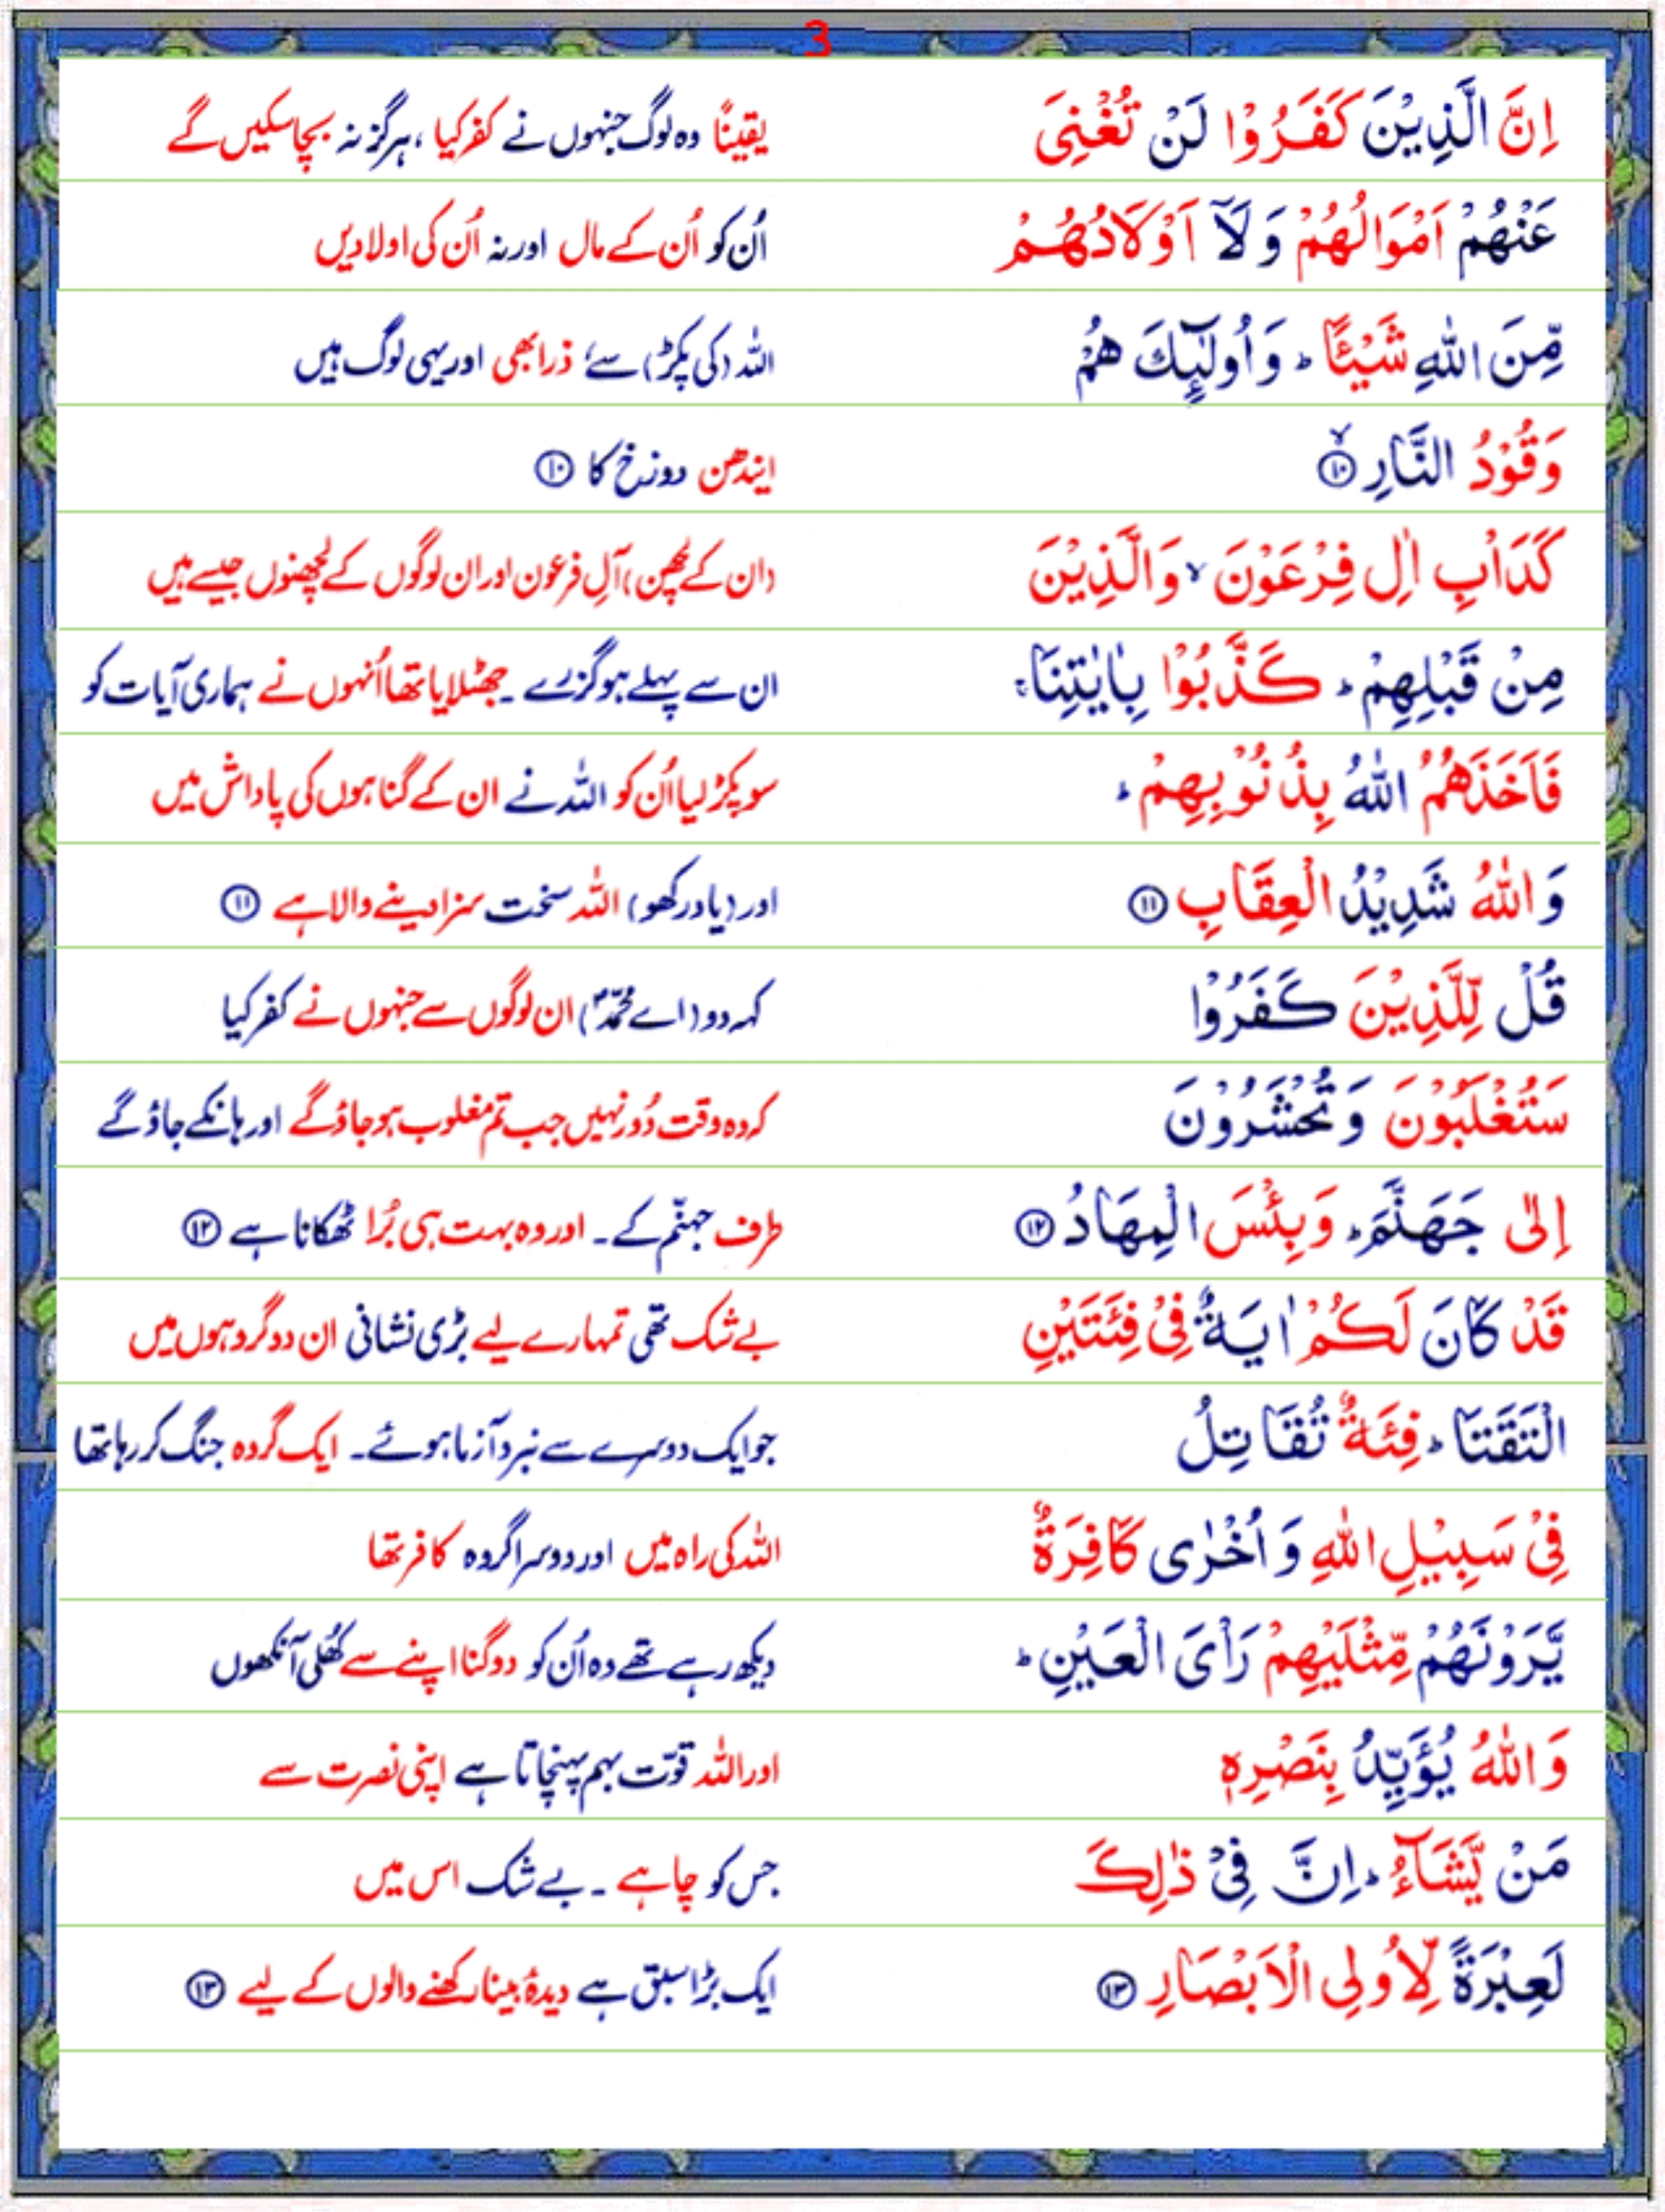 3
اِنَّ الَّذِيْنَ كَفَرُوْا لَنْ تُغْنِىَ یقینًا وہ لوگ جنہوں نے کفر کیا ، ہرگز نہ بچا سکیں گے
عَنْهُمْ اَمْوَالُهُمْ وَ لَاۤ اَوْلَادُهُمْ اُن کو اُن کے مال اور نہ اُن کی اولادیں
مِّنَ اللّٰهِ شَيْـًٔا ؕ وَ اُولٰٓئِكَ هُمْ اللہ (کی پکڑ) سے ذرا بھی اور یہی لوگ ہیں
وَقُوْدُ النَّارِ ۙ۱۰ ایندھن دوزخ کا ۱۰
كَدَاْبِ اٰلِ فِرْعَوْنَ ۙ وَالَّذِيْنَ (ان کے لچھن) آلِ فرعون اور ان لوگوں کے لچھنوں جیسے ہیں
مِنْ قَبْلِهِمْ ؕ كَذَّبُوْا بِاٰيٰتِنَا ۚ ان سے پہلے ہو گزرے ۔ جھٹلایا تھا اُنہوں نے ہماری آیات کو
فَاَخَذَهُمُ اللّٰهُ بِذُنُوْبِهِمْ ؕ سو پکڑ لیا اُن کو اللہ نے ان کے گناہوں کی پاداش میں
وَ اللّٰهُ شَدِيْدُ الْعِقَابِ ۱۱ اور (یاد رکھو) اللہ سخت سزا دینے والا ہے ۱۱
قُلْ لِّلَّذِيْنَ كَفَرُوْا کہہ دو (اے محمّدؐ) ان لوگوں سے جنہوں نے کفر کیا
سَتُغْلَبُوْنَ وَ تُحْشَرُوْنَ کہ وہ وقت دُور نہیں جب تم مغلوب ہو جاؤ گے اور ہانکے جاؤ گے
اِلٰى جَهَنَّمَ ؕ وَبِئْسَ الْمِهَادُ ۱۲ طرف جہنّم کے ۔ اور وہ بہت ہی بُرا ٹھکانا ہے ۱۲
قَدْ كَانَ لَكُمْ اٰيَةٌ فِىْ فِئَتَيْنِ بے شک تھی تمہارے لیے بڑی نشانی ان دو گروہوں میں
الْتَقَتَا ؕ فِئَةٌ تُقَاتِلُ جو ایک دوسرے سے نبرد آزما ہوئے ۔ ایک گروہ جنگ کر رہا تھا
فِىْ سَبِيْلِ اللّٰهِ وَ اُخْرٰى كَافِرَةٌ اللہ کی راہ میں اور دوسرا گروہ کافر تھا
يَّرَوْنَهُمْ مِّثْلَيْهِمْ رَاْىَ الْعَيْنِ ؕ دیکھ رہے تھے وہ اُن کو دوگنا اپنے سے کھُلی آنکھوں
وَ اللّٰهُ يُؤَيِّدُ بِنَصْرِهٖ اور اللہ قوّت بہم پہنچاتا ہے اپنی نصرت سے
مَنْ يَّشَآءُ ؕ اِنَّ فِىْ ذٰلِكَ جس کو چاہے ۔ بے شک اس میں
لَعِبْرَةً لِّاُولِى الْاَبْصَارِ ۱۳ ایک بڑا سبق ہے دیدۂ بینا رکھنے والوں کے لیے ۱۳